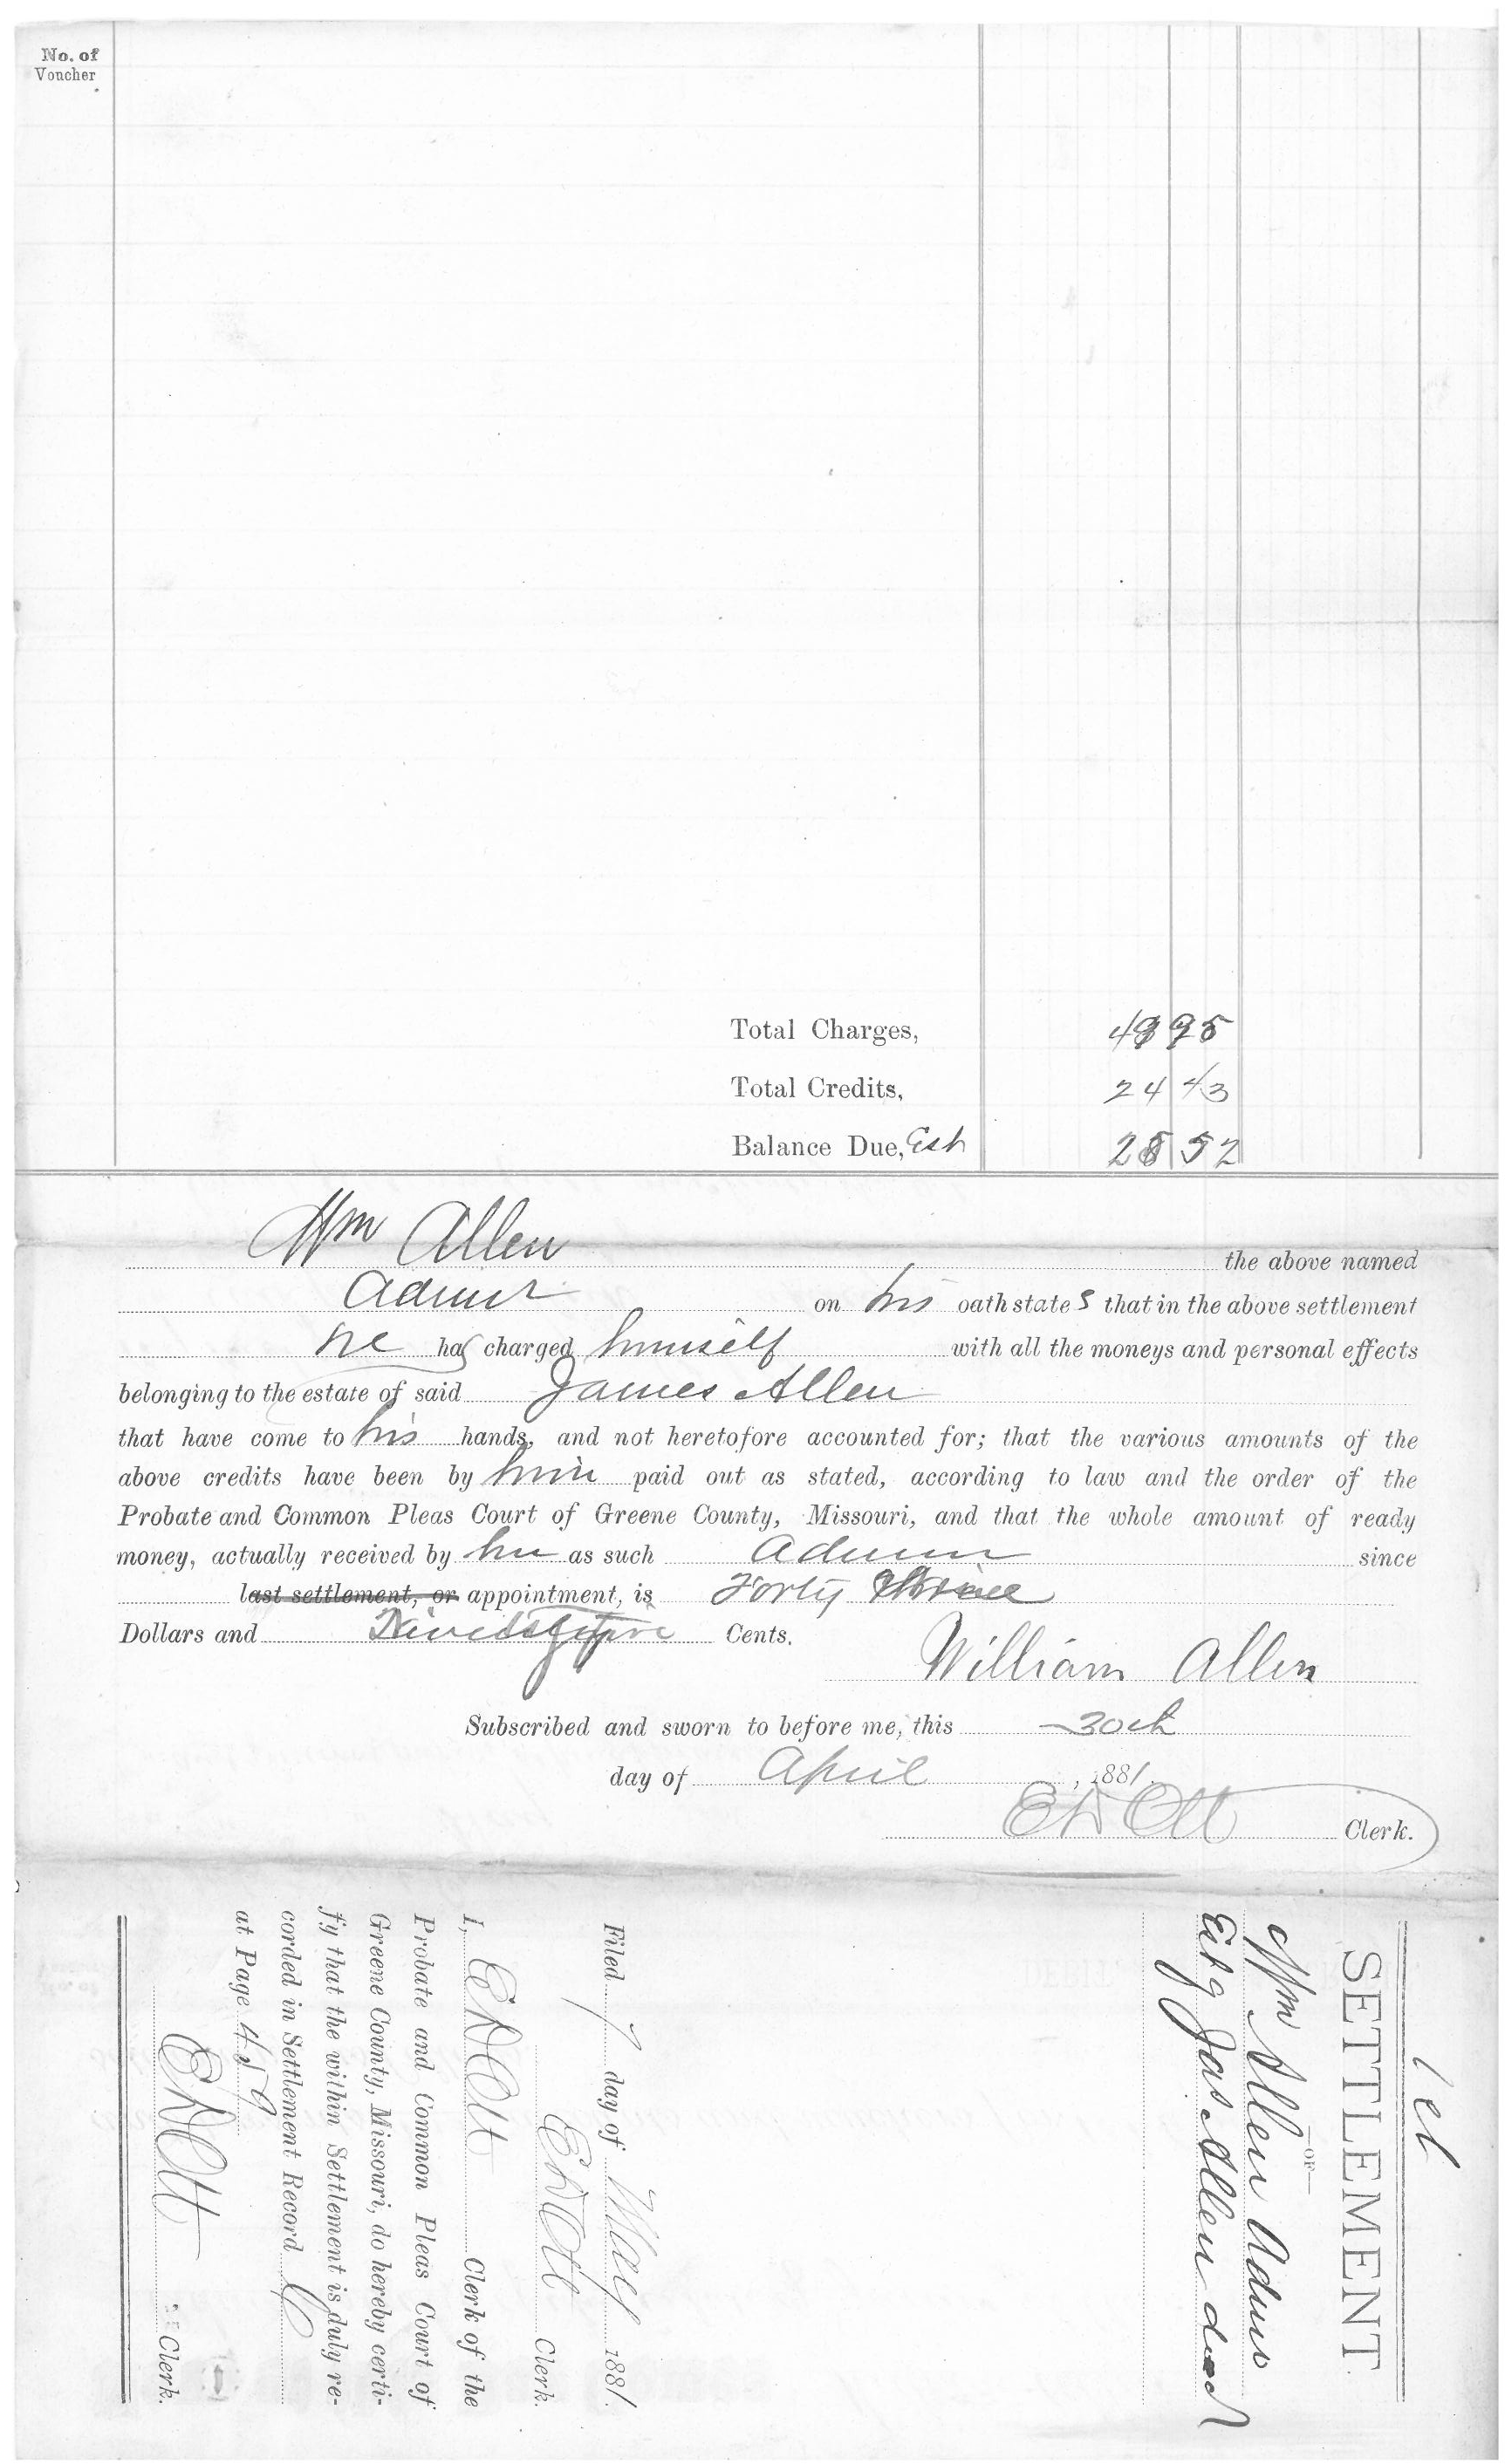 No. of
Voucher
Total Charges, 4995
Total Credits, 24 43
Balance Due, Est 25 52
Wm Allen the above named
Admr on his oath states that in the above settlement
he has charged himself with all the moneys and personal effects
belonging to the estate of said James Allen
that have come to his hands, and not heretofore accounted for; that the various amounts of the
above credits have been by him paid out as stated, according to law and the order of the
Probate and Common Pleas Court of Greene County, Missouri, and that the whole amount of ready
money, actually received by him as such Admr since
last settlement, or appointment, is Forty
Dollars and Cents.
William Allen
Subscribed and sworn to before me, this 30th
day of April, 1881.
E D Ott Clerk.
1st
SETTLEMENT
—OF—
Wm Allen Admr
Est of Jas Allen decd
Filed 7 day of May 1881.
E D Ott Clerk.
I, E D Ott Clerk of the
Probate and Common Pleas Court of
Greene County, Missouri, do hereby certi-
fy that the within Settlement is duly re-
corded in Settlement Record
at Page 459
E D Ott Clerk.